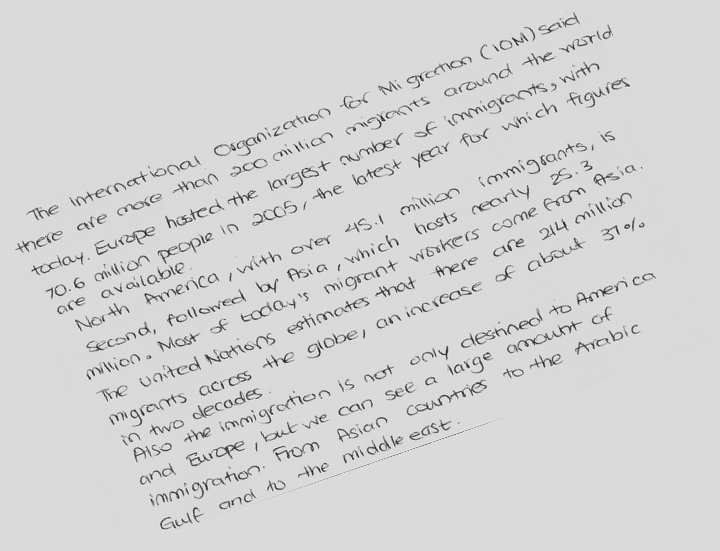 The International Organization for Migration (IOM) said
there are more than 200 million migrants around the world
today. Europe hosted the largest number of immigrants, with
70.6 million people in 2005, the latest year for which figures
are available.
North America, with over 45.1 million immigrants, is
second, followed by Asia, which hosts nearly 25.3
million. Most of today's migrant workers come from Asia.
The united Nations estimates that there are 214 million
migrants across the globe, an increase of about 37%
in two decades.
Also the immigration is not only destined to America
and Europe, but we can see a large amount of
immigration. From Asian countries to the Arabic
Gulf and to the middle east.